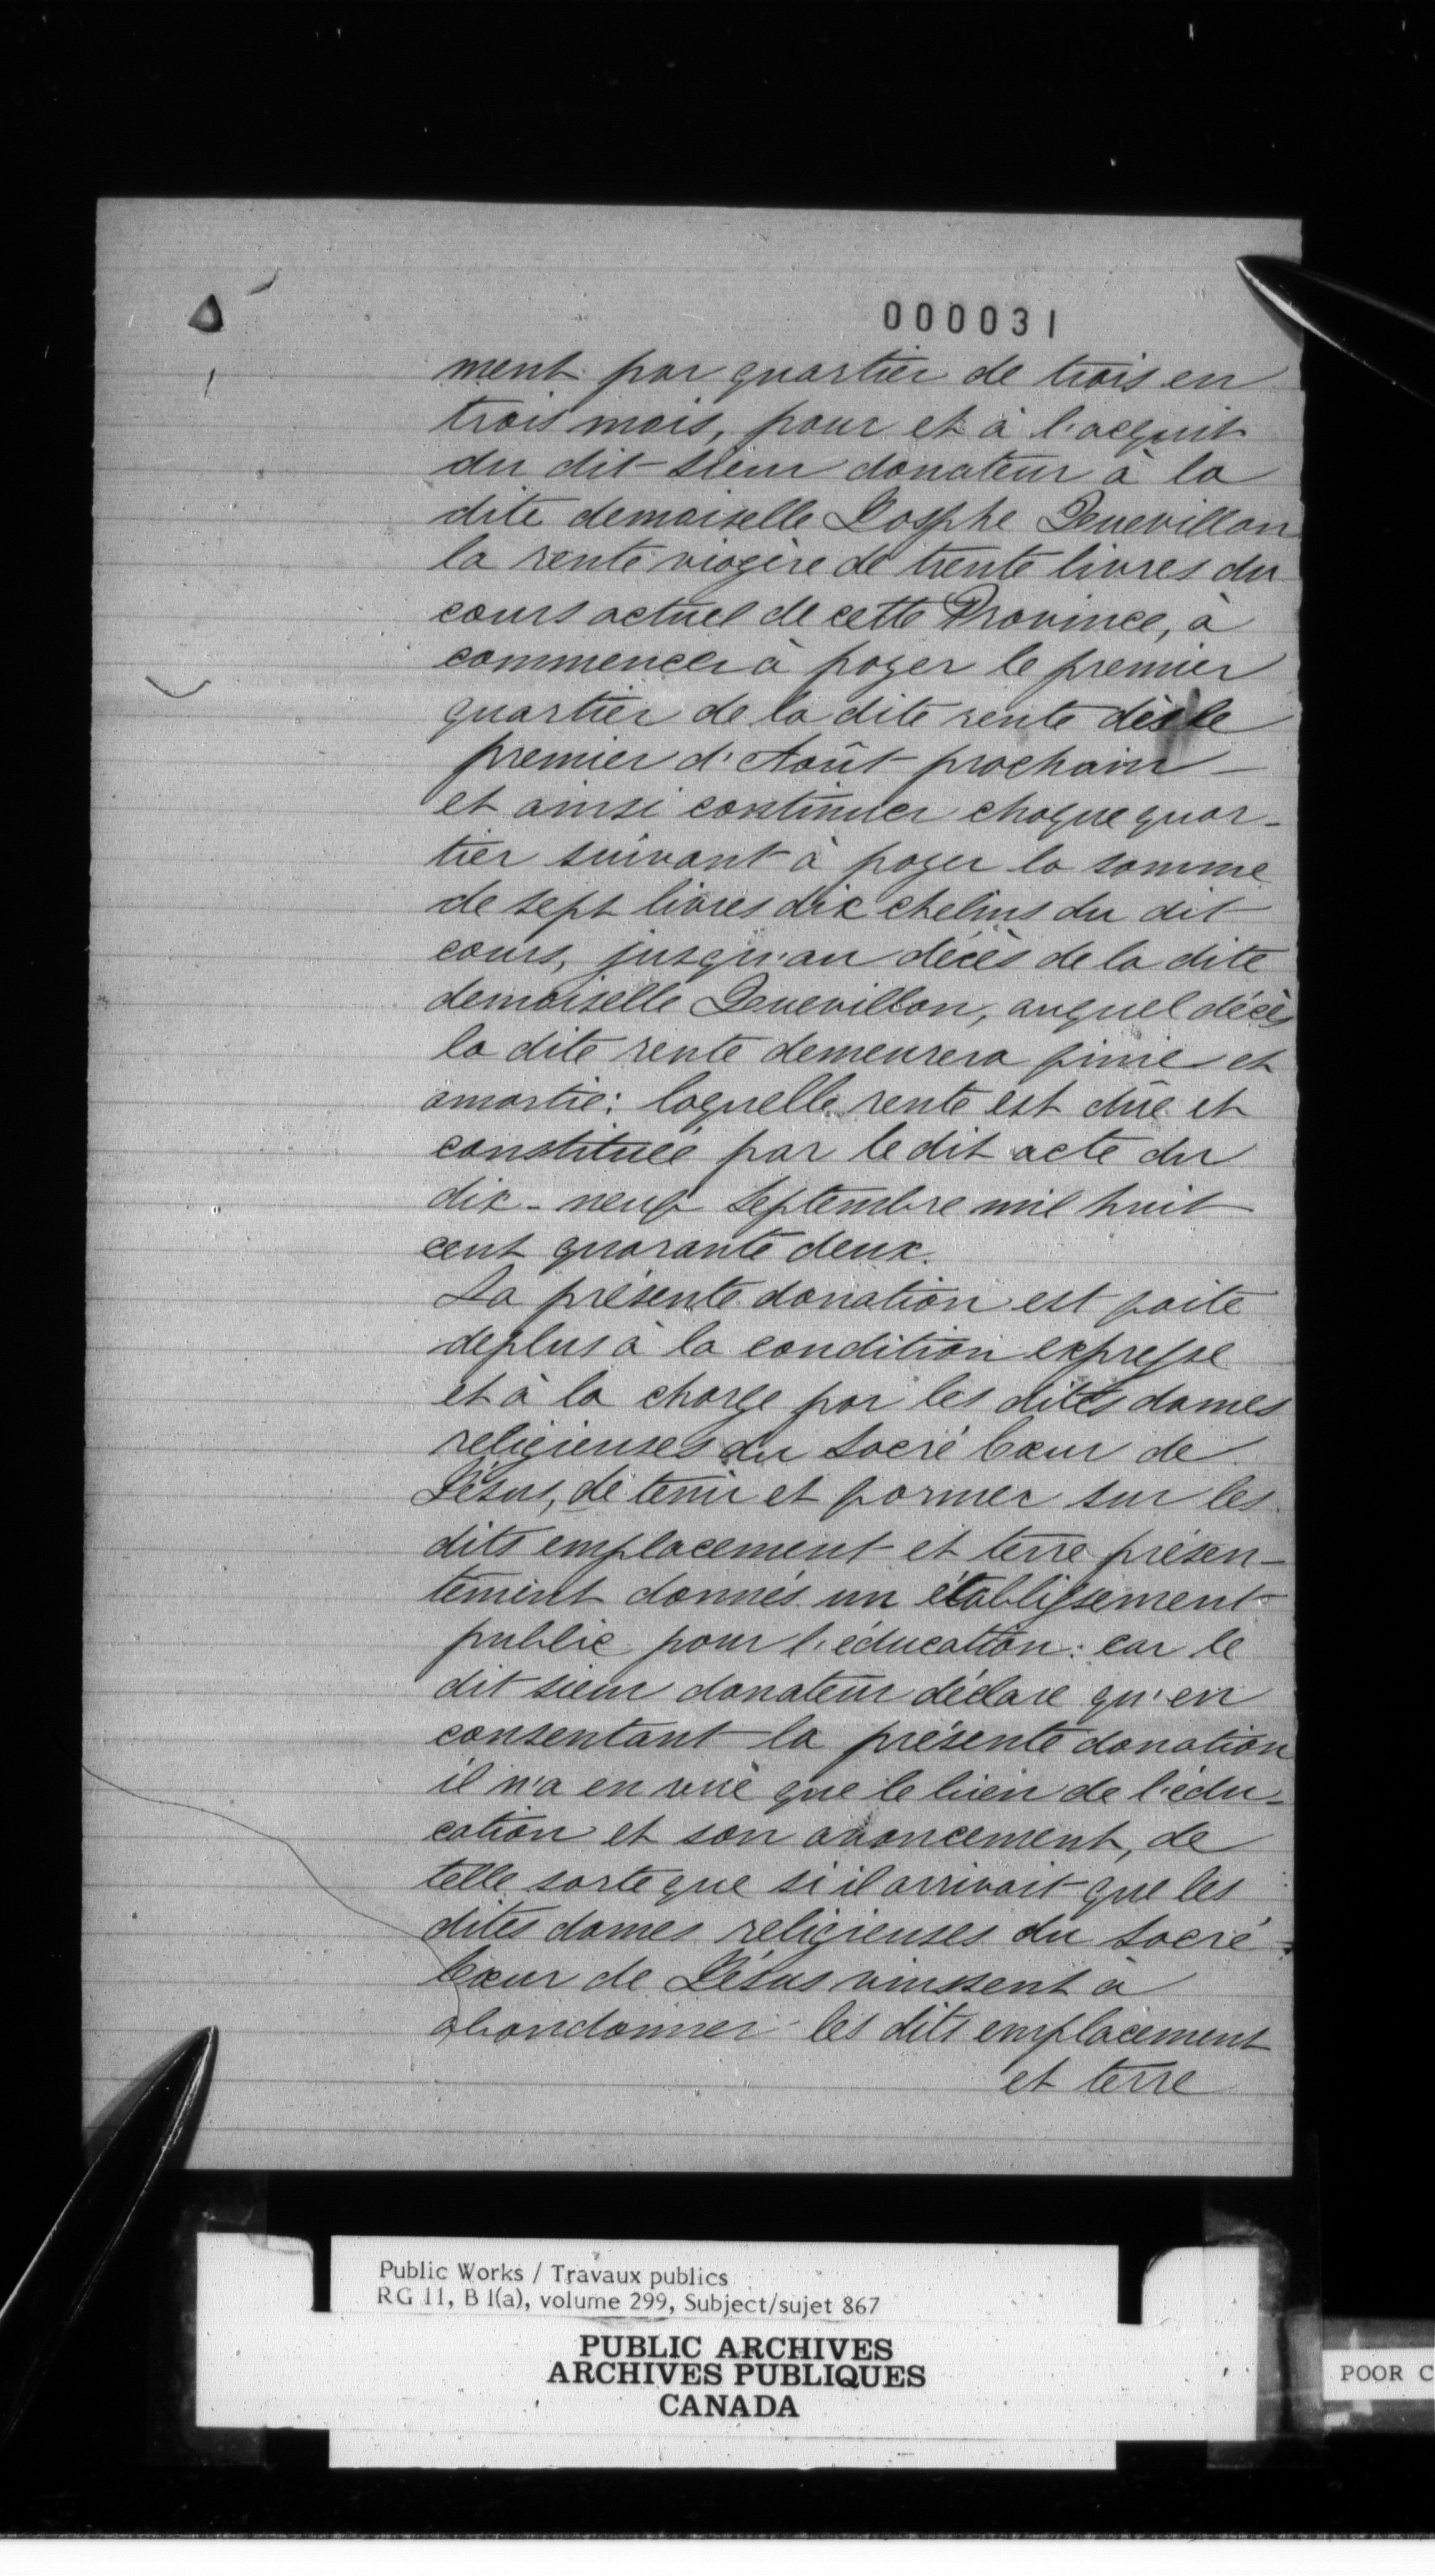 000031
ment par quartier de trois en
trois mois, pour et à l'acquit
du dit sieur donateur à la
dite demoiselle Josphe Quevillon
la rente viogère de trente livres du
cours actuel de cette Province, à
commencer à payer le premier
quartier de la dite rente dès le
premier d'Août prochain –
et ainsi continuer chaque quar-
tier suivant à payer la somme
de sept livres dix chelins du dit
cours, jusqu'au décès de la dite
demoiselle Quevillon, auquel décès
la dite rente demeurera finie et
amortie: laquelle rente est dûe et
constituée par le dit acte du
dix-neuf Septembre mil huit
cent quarante deux.
La présente donation est faite
deplus à la condition expresse
et à la charge par les dites dames
religieuses du Sacré Cœur de
Jésus, de tenir et former sur les
dits emplacement et terre présen-
tement donnés un établissement
public pour l'éducation: car le
dit sieur donateur déclare qu'en
consentant la présente donation
il n'a en vuè que le bien de l'édu-
cation et son avancement, de
telle sorte que si il arrivait que les
dites dames religieuses du Sacré
Cœur de Jésus vinssent à
abandonner les dits emplacement
et terre
Public Works / Travaux publics
RG 11, B 1(a), volume 299, Subject/sujet 867
PUBLIC ARCHIVES
ARCHIVES PUBLIQUES
CANADA
POOR C